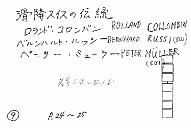 滑降スイスの伝統
ロランド・コロンバン ROLLAND COLLOMBIN
ベルンハルト・ルッシ BERNHARD RUSSI (SUI)
ペーター・ミューラー PETER MÜLLER (SUI)
⑨ P.24〜25